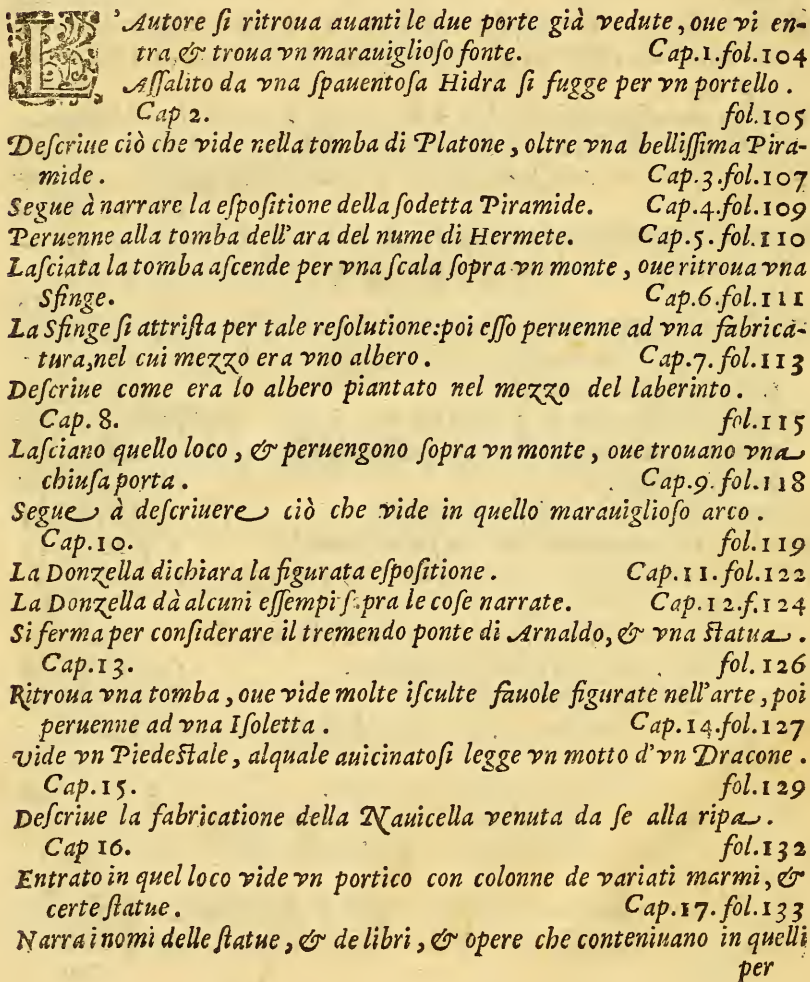 L'Autore ſi ritroua auanti le due porte già vedute, oue vi en-
tra, & troua vn marauiglioſo fonte. Cap.1.fol.104
Aſſalito da vna ſpauentoſa Hidra ſi fugge per vn portello.
Cap 2. fol.105
Deſcriue ciò che vide nella tomba di Platone, oltre vna belliſſima Pira-
mide. Cap.3.fol.107
Segue à narrare la eſpoſitione della ſodetta Piramide. Cap.4.fol.109
Peruenne alla tomba dell'ara del nume di Hermete. Cap.5.fol.110
Laſciata la tomba aſcende per vna ſcala ſopra vn monte, oue ritroua vna
Sfinge. Cap.6.fol.111
La Sfinge ſi attriſta per tale reſolutione:poi eſſo peruenne ad vna fabrica-
tura,nel cui mezzo era vno albero. Cap.7.fol.113
Deſcriue come era lo albero piantato nel mezzo del laberinto.
Cap. 8. fol.115
Laſciano quello loco, & peruengono ſopra vn monte, oue trouano vna
chiuſa porta. Cap.9.fol.118
Segue à deſcriuere ciò che vide in quello marauiglioſo arco.
Cap.10. fol.119
La Donzella dichiara la figurata eſpoſitione. Cap.11.fol.122
La Donzella dà alcuni eſſempi ſopra le coſe narrate. Cap.12.f.124
Si ferma per conſiderare il tremendo ponte di Arnaldo, & vna ſtatua.
Cap.13. fol. 126
Ritroua vna tomba, oue vide molte iſculte fauole figurate nell'arte, poi
peruenne ad vna Iſoletta. Cap.14.fol.127
vide vn Piedeſtale, alquale auicinatoſi legge vn motto d'vn Dracone.
Cap.15. fol.129
Deſcriue la fabricatione della Nauicella venuta da ſe alla ripa.
Cap 16. fol.132
Entrato in quel loco vide vn portico con colonne de variati marmi, &
certe ſtatue. Cap.17.fol.133
Narra i nomi delle ſtatue, & de libri, & opere che conteniuano in quelli
per